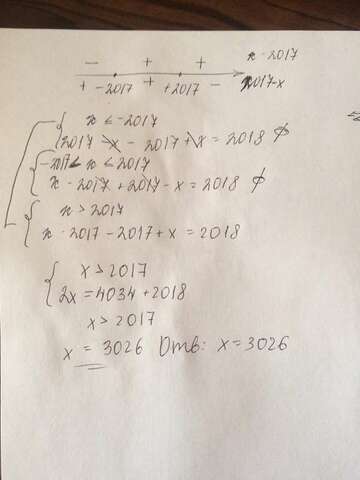 − + + x - 2017
+ -2017 + +2017 − 2017-x
x ≤ -2017
2017 - x - 2017 + x = 2018 ∅
-2017 < x ≤ 2017
x - 2017 + 2017 - x = 2018 ∅
x > 2017
x - 2017 - 2017 + x = 2018
x > 2017
2x = 4034 + 2018
x > 2017
x = 3026 Отв: x = 3026